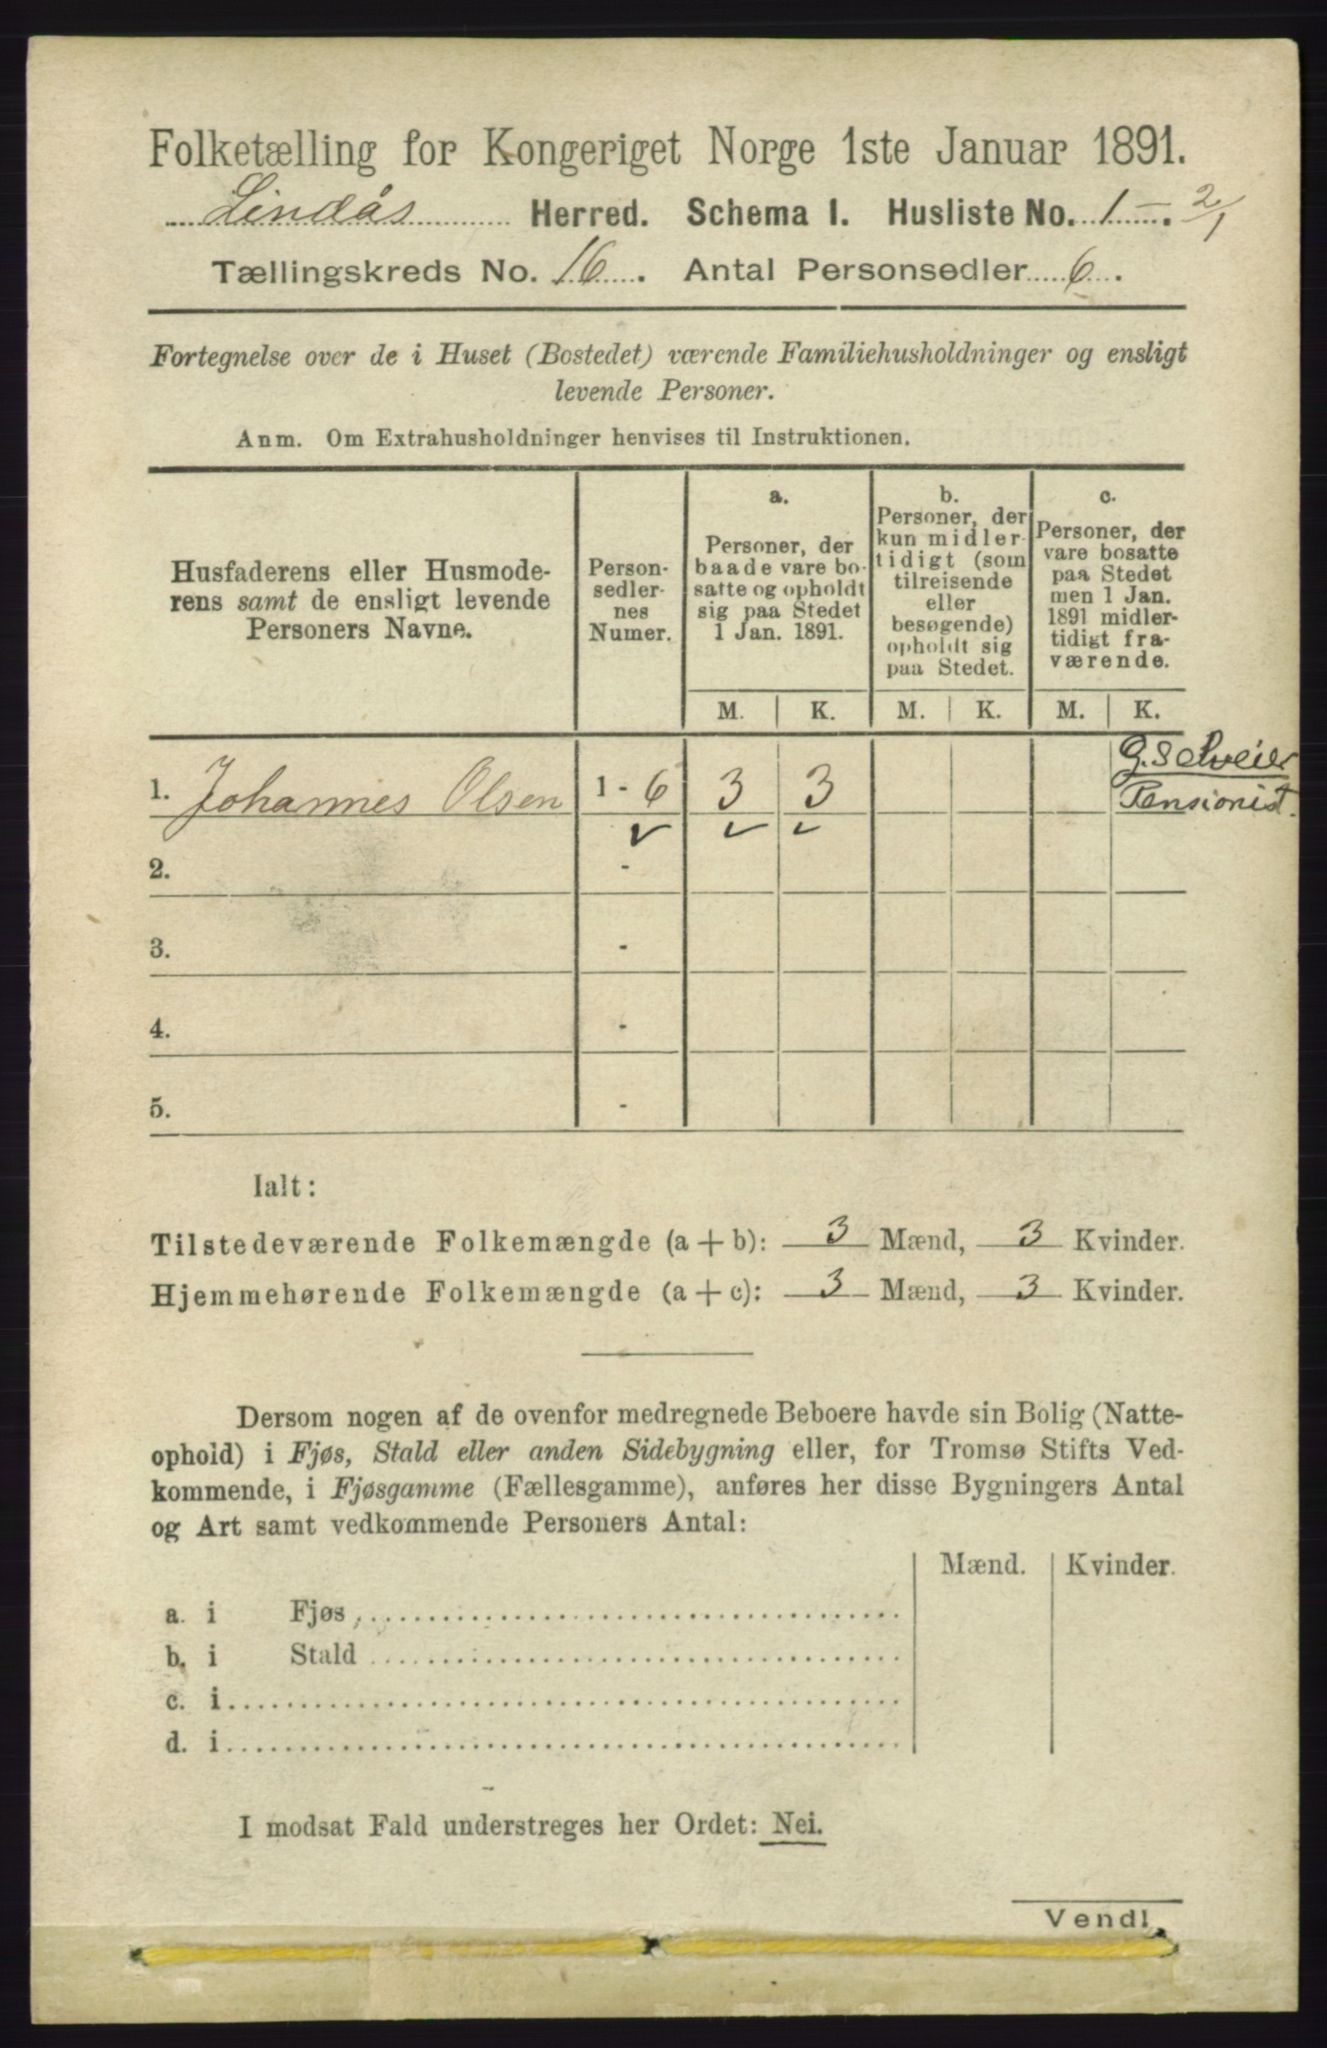 Folketælling for Kongeriget Norge 1ste Januar 1891.
Lindås Herred. Schema I. Husliste No. 1 - 2/1
Tællingskreds No. 16. Antal Personsedler 6.
Fortegnelse over de i Huset (Bostedet) værende Familiehusholdninger og ensligt
levende Personer.
Anm. Om Extrahusholdninger henvises til Instruktionen.
Husfaderens eller Husmode-
rens samt de ensligt levende
Personers Navne.
Person-
sedler-
nes
Numer.
a.
Personer, der
baade vare bo-
satte og opholdt
sig paa Stedet
1 Jan. 1891.
b.
Personer, der
kun midler-
tidigt (som
tilreisende
eller
besøgende)
opholdt sig
paa Stedet.
c.
Personer, der
vare bosatte
paa Stedet
men 1 Jan.
1891 midler-
tidigt fra-
værende.
M. K. M. K. M. K.
G. Selveier
Pensionist.
1. Johannes Olsen 1 - 6 3 3
2. -
3. -
4. -
5. -
Ialt:
Tilstedeværende Folkemængde (a + b): 3 Mænd, 3 Kvinder.
Hjemmehørende Folkemængde (a + c): 3 Mænd, 3 Kvinder.
Dersom nogen af de ovenfor medregnede Beboere havde sin Bolig (Natte-
ophold) i Fjøs, Stald eller anden Sidebygning eller, for Tromsø Stifts Ved-
kommende, i Fjøsgamme (Fællesgamme), anføres her disse Bygningers Antal
og Art samt vedkommende Personers Antal:
Mænd. Kvinder.
a. i Fjøs
b. i Stald
c. i
d. i
I modsat Fald understreges her Ordet: Nei.
Vend!